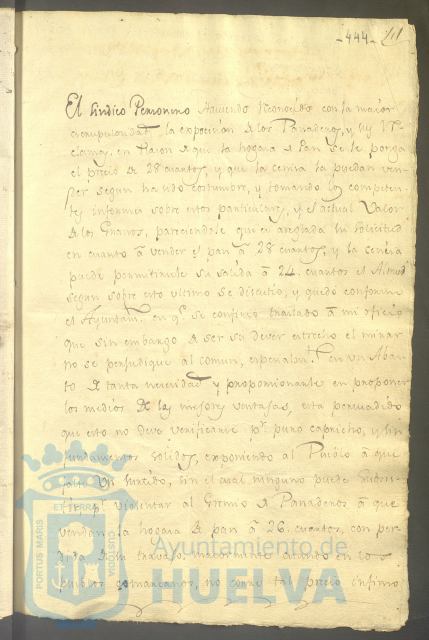 -444- 111
El Sindico Personero Haviendo reconocido con la maior
escrupulosidad la exposicion de los Panaderos, y sus Re-
clamos, en razon a que la hogaza de Pan se le ponga
el precio de 28 cuartos, y que la cemita la puedan ven-
der segun ha sido costumbre, y tomando los competen-
tes informes sobre estos particulares, y el actual valor
de los Granos, pareciendole que es arreglada la solicitud
en cuanto á vender el pan á 28 cuartos, y la cemita
puede permitirsele su salida á 24 cuartos el Almud
segun sobre esto ultimo se discutio, y quedó conforme
el Ayuntam.to en q.e se confirió traslado á mi oficio
que sin embargo de ser su dever estrecho el mirar
no se perjudique al comun, especialm.te en un Abas-
to de tanta necesidad y proporcionarle en proponer
los medios de las mejores ventajas, está persuadido
que esto no deve verificarse p.r puro capricho, y sin
fundamentos solidos, exponiendo al Pueblo á que
falte un surtido, sin el cual ninguno puede subsis-
tir, al violentar al Gremio de Panaderos á que
vendan la hogaza de pan á 26 cuartos, con per-
dida de su travajo, maiormente cuando en los
pueblos comarcanos, no corre tal precio infimo
PORTUS MARIS ET TERRAE CUSTODIA
Ayuntamiento de
HUELVA